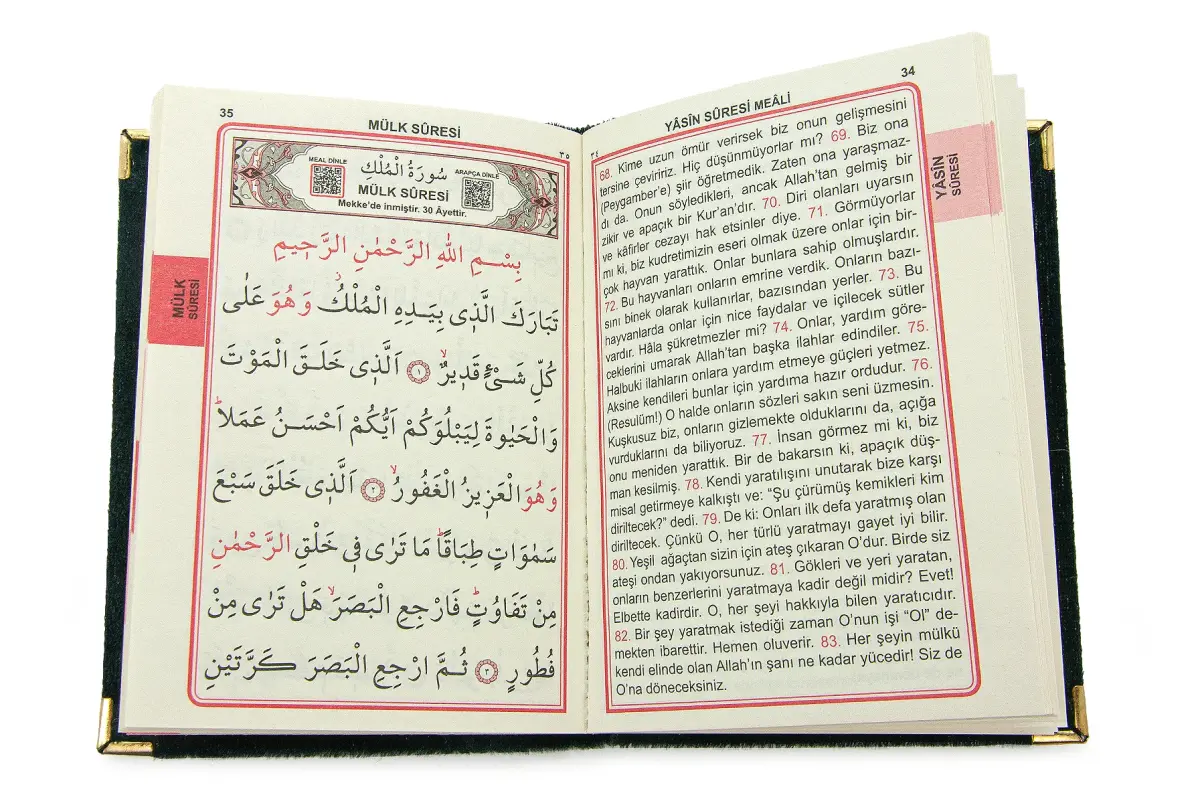 34
YÂSÎN SÛRESİ MEÂLİ
٣٤
68. Kime uzun ömür verirsek biz onun gelişmesini
tersine çeviririz. Hiç düşünmüyorlar mı? 69. Biz ona
(Peygamber’e) şiir öğretmedik. Zaten ona yaraşmaz-
dı da. Onun söyledikleri, ancak Allah’tan gelmiş bir
zikir ve apaçık bir Kur’an’dır. 70. Diri olanları uyarsın
ve kâfirler cezayı hak etsinler diye. 71. Görmüyorlar
mı ki, biz kudretimizin eseri olmak üzere onlar için bir-
çok hayvan yarattık. Onlar bunlara sahip olmuşlardır.
72. Bu hayvanları onların emrine verdik. Onların bazı-
sını binek olarak kullanırlar, bazısından yerler. 73. Bu
hayvanlarda onlar için nice faydalar ve içilecek sütler
vardır. Hâla şükretmezler mi? 74. Onlar, yardım göre-
ceklerini umarak Allah’tan başka ilahlar edindiler. 75.
Halbuki ilahların onlara yardım etmeye güçleri yetmez.
Aksine kendileri bunlar için yardıma hazır ordudur. 76.
(Resulüm!) O halde onların sözleri sakın seni üzmesin.
Kuşkusuz biz, onların gizlemekte olduklarını da, açığa
vurduklarını da biliyoruz. 77. İnsan görmez mi ki, biz
onu meniden yarattık. Bir de bakarsın ki, apaçık düş-
man kesilmiş. 78. Kendi yaratılışını unutarak bize karşı
misal getirmeye kalkıştı ve: “Şu çürümüş kemikleri kim
diriltecek?” dedi. 79. De ki: Onları ilk defa yaratmış olan
diriltecek. Çünkü O, her türlü yaratmayı gayet iyi bilir.
80. Yeşil ağaçtan sizin için ateş çıkaran O’dur. Birde siz
ateşi ondan yakıyorsunuz. 81. Gökleri ve yeri yaratan,
onların benzerlerini yaratmaya kadir değil midir? Evet!
Elbette kadirdir. O, her şeyi hakkıyla bilen yaratıcıdır.
82. Bir şey yaratmak istediği zaman O’nun işi “Ol” de-
mekten ibarettir. Hemen oluverir. 83. Her şeyin mülkü
kendi elinde olan Allah’ın şanı ne kadar yücedir! Siz de
O’na döneceksiniz.
YÂSÎN
SÛRESİ
35
MÜLK SÛRESİ
٣٥
MEAL DİNLE
سُورَةُ الْمُلْكِ
ARAPÇA DİNLE
MÜLK SÛRESİ
Mekke’de inmiştir. 30 Âyettir.
بِسْمِ اللّٰهِ الرَّحْمٰنِ الرَّحٖيمِ
تَبَارَكَ الَّذٖى بِيَدِهِ الْمُلْكُۘ وَهُوَ عَلٰى
كُلِّ شَىْءٍ قَدٖيرٌۙ ١ اَلَّذٖى خَلَقَ الْمَوْتَ
وَالْحَيٰوةَ لِيَبْلُوَكُمْ اَيُّكُمْ اَحْسَنُ عَمَلًاؕ
وَهُوَ الْعَزٖيزُ الْغَفُورُۙ ٢ اَلَّذٖى خَلَقَ سَبْعَ
سَمٰوَاتٍ طِبَاقًاؕ مَا تَرٰى فٖى خَلْقِ الرَّحْمٰنِ
مِنْ تَفَاوُتٍؕ فَارْجِعِ الْبَصَرَۙ هَلْ تَرٰى مِنْ
فُطُورٍ ٣ ثُمَّ ارْجِعِ الْبَصَرَ كَرَّتَيْنِ
MÜLK
SÛRESİ